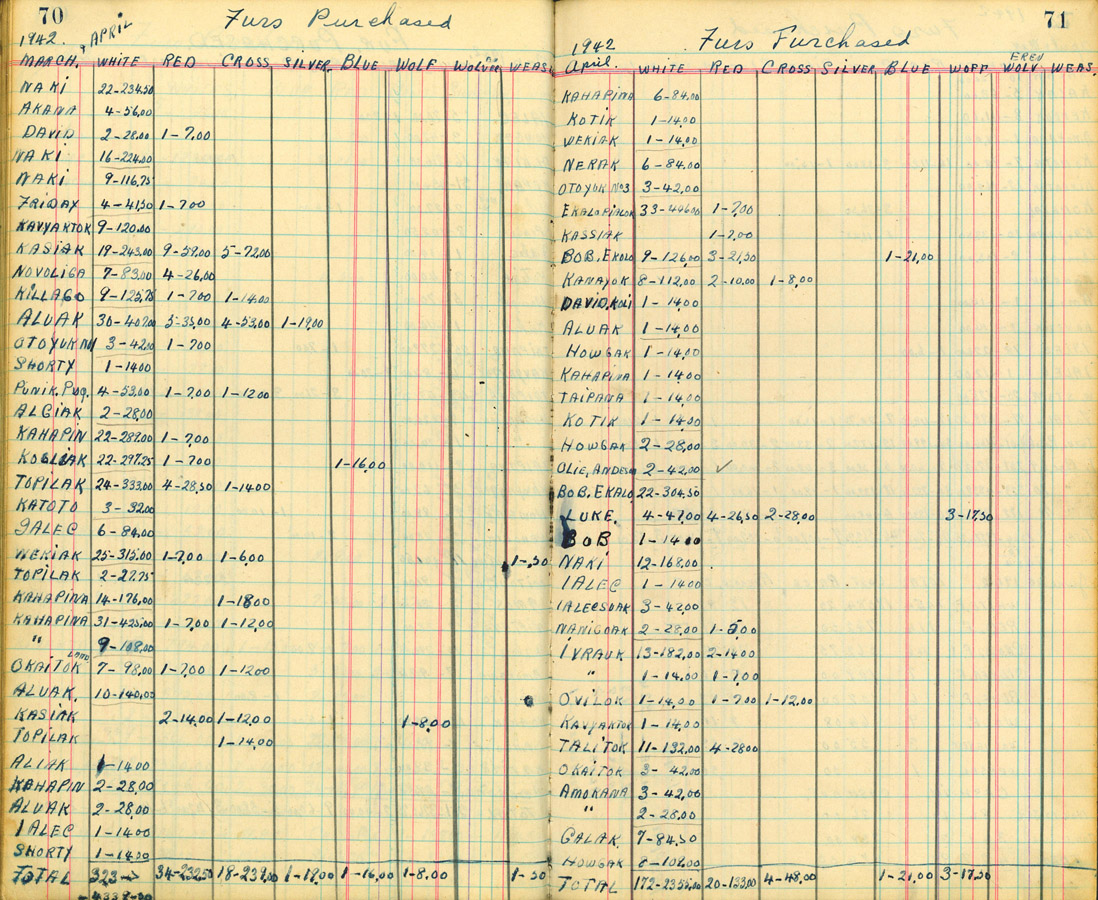 70
Furs Purchased
1942. & APRIL
MARCH. WHITE RED CROSS SILVER BLUE WOLF WEAS
NAKI 22-234.50
AKANA 4-56.00
DAVID 2-28.00 1-7.00
NAKI 16-224.00
NAKI 9-116.75
FRIDAY 4-41.50 1-7.00
KAVYAKTOK 9-120.00
KASIAK 19-243.00 9-59.00 5-72.00
NOVOLIGA 7-83.00 4-26.00
KILLAGO 9-125.75 1-7.00 1-14.00
ALUAK 30-407.00 5-35.00 4-53.00 1-19.00
3-42.00 1-7.00
SHORTY 1-14.00
4-53.00 1-7.00 1-12.00
ALGIAK 2-28.00
KAHAPIN 22-289.00 1-7.00
22-297.25 1-7.00 1-16.00
TOPILAK 24-333.00 4-28.50 1-14.00
KATOTO 3-32.00
IALEC 6-84.00
WEKIAK 25-315.00 1-7.00 1-6.00 1-.50
TOPILAK 2-27.75
KAHAPINA 14-176.00 1-18.00
KAHAPINA 31-425.00 1-7.00 1-12.00
" 9-108.00
OKAITOK 7-98.00 1-7.00 1-12.00
ALUAK. 10-140.00
KASIAK 2-14.00 1-12.00 1-8.00
TOPILAK 1-14.00
ALIAK 1-14.00
KAHAPIN 2-28.00
ALUAK 2-28.00
IALEC 1-14.00
SHORTY 1-14.00
TOTAL 323→ 34-232.50 18-239.00 1-19.00 1-16.00 1-8.00 1-50
71
1942 Furs Furchased
April. WHITE RED CROSS SILVER BLUE WOFF WOLV EREN WEAS.
KAHAPINA 6-84.00
KOTIK 1-14.00
WEKIAK 1-14.00
NERAK 6-84.00
OTOYUK No3 3-42.00
EKALOPIALOK 33-406.00 1-7.00
KASSIAK 1-7.00
BOB, EKALO 9-126.00 3-21.50 1-21.00
KANAYOK 8-112.00 2-10.00 1-8.00
DAVID, KOLI 1-14.00
ALUAK 1-14.00
HOWGAK 1-14.00
KAHAPINA 1-14.00
TAIPANA 1-14.00
KOTIK 1-14.00
HOWGAK 2-28.00
OLIE, ANDESON 2-42.00 ✓
BOB, EKALO 22-304.50
LUKE. 4-47.00 4-26.50 2-28.00 3-17.50
BOB 1-14.00
NAKI 12-168.00
IALEC 1-14.00
IALECSOAK 3-42.00
NANIGOAK 2-28.00 1-5.00
IVRAUK 13-182.00 2-14.00
" 1-14.00 1-7.00
OVILOK 1-14.00 1-7.00 1-12.00
KAVYAKTOK 1-14.00
TALITOK 11-132.00 4-28.00
OKAITOK 3-42.00
AMOKANA 3-42.00
" 2-28.00
GALAK. 7-84.50
HOWGAK 8-102.00
TOTAL 172-2355.00 20-133.00 4-48.00 1-21.00 3-17.50